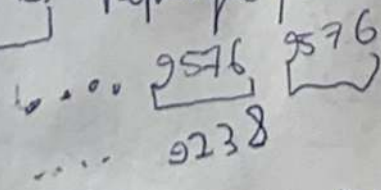 .... 9576 9576
.... 9238